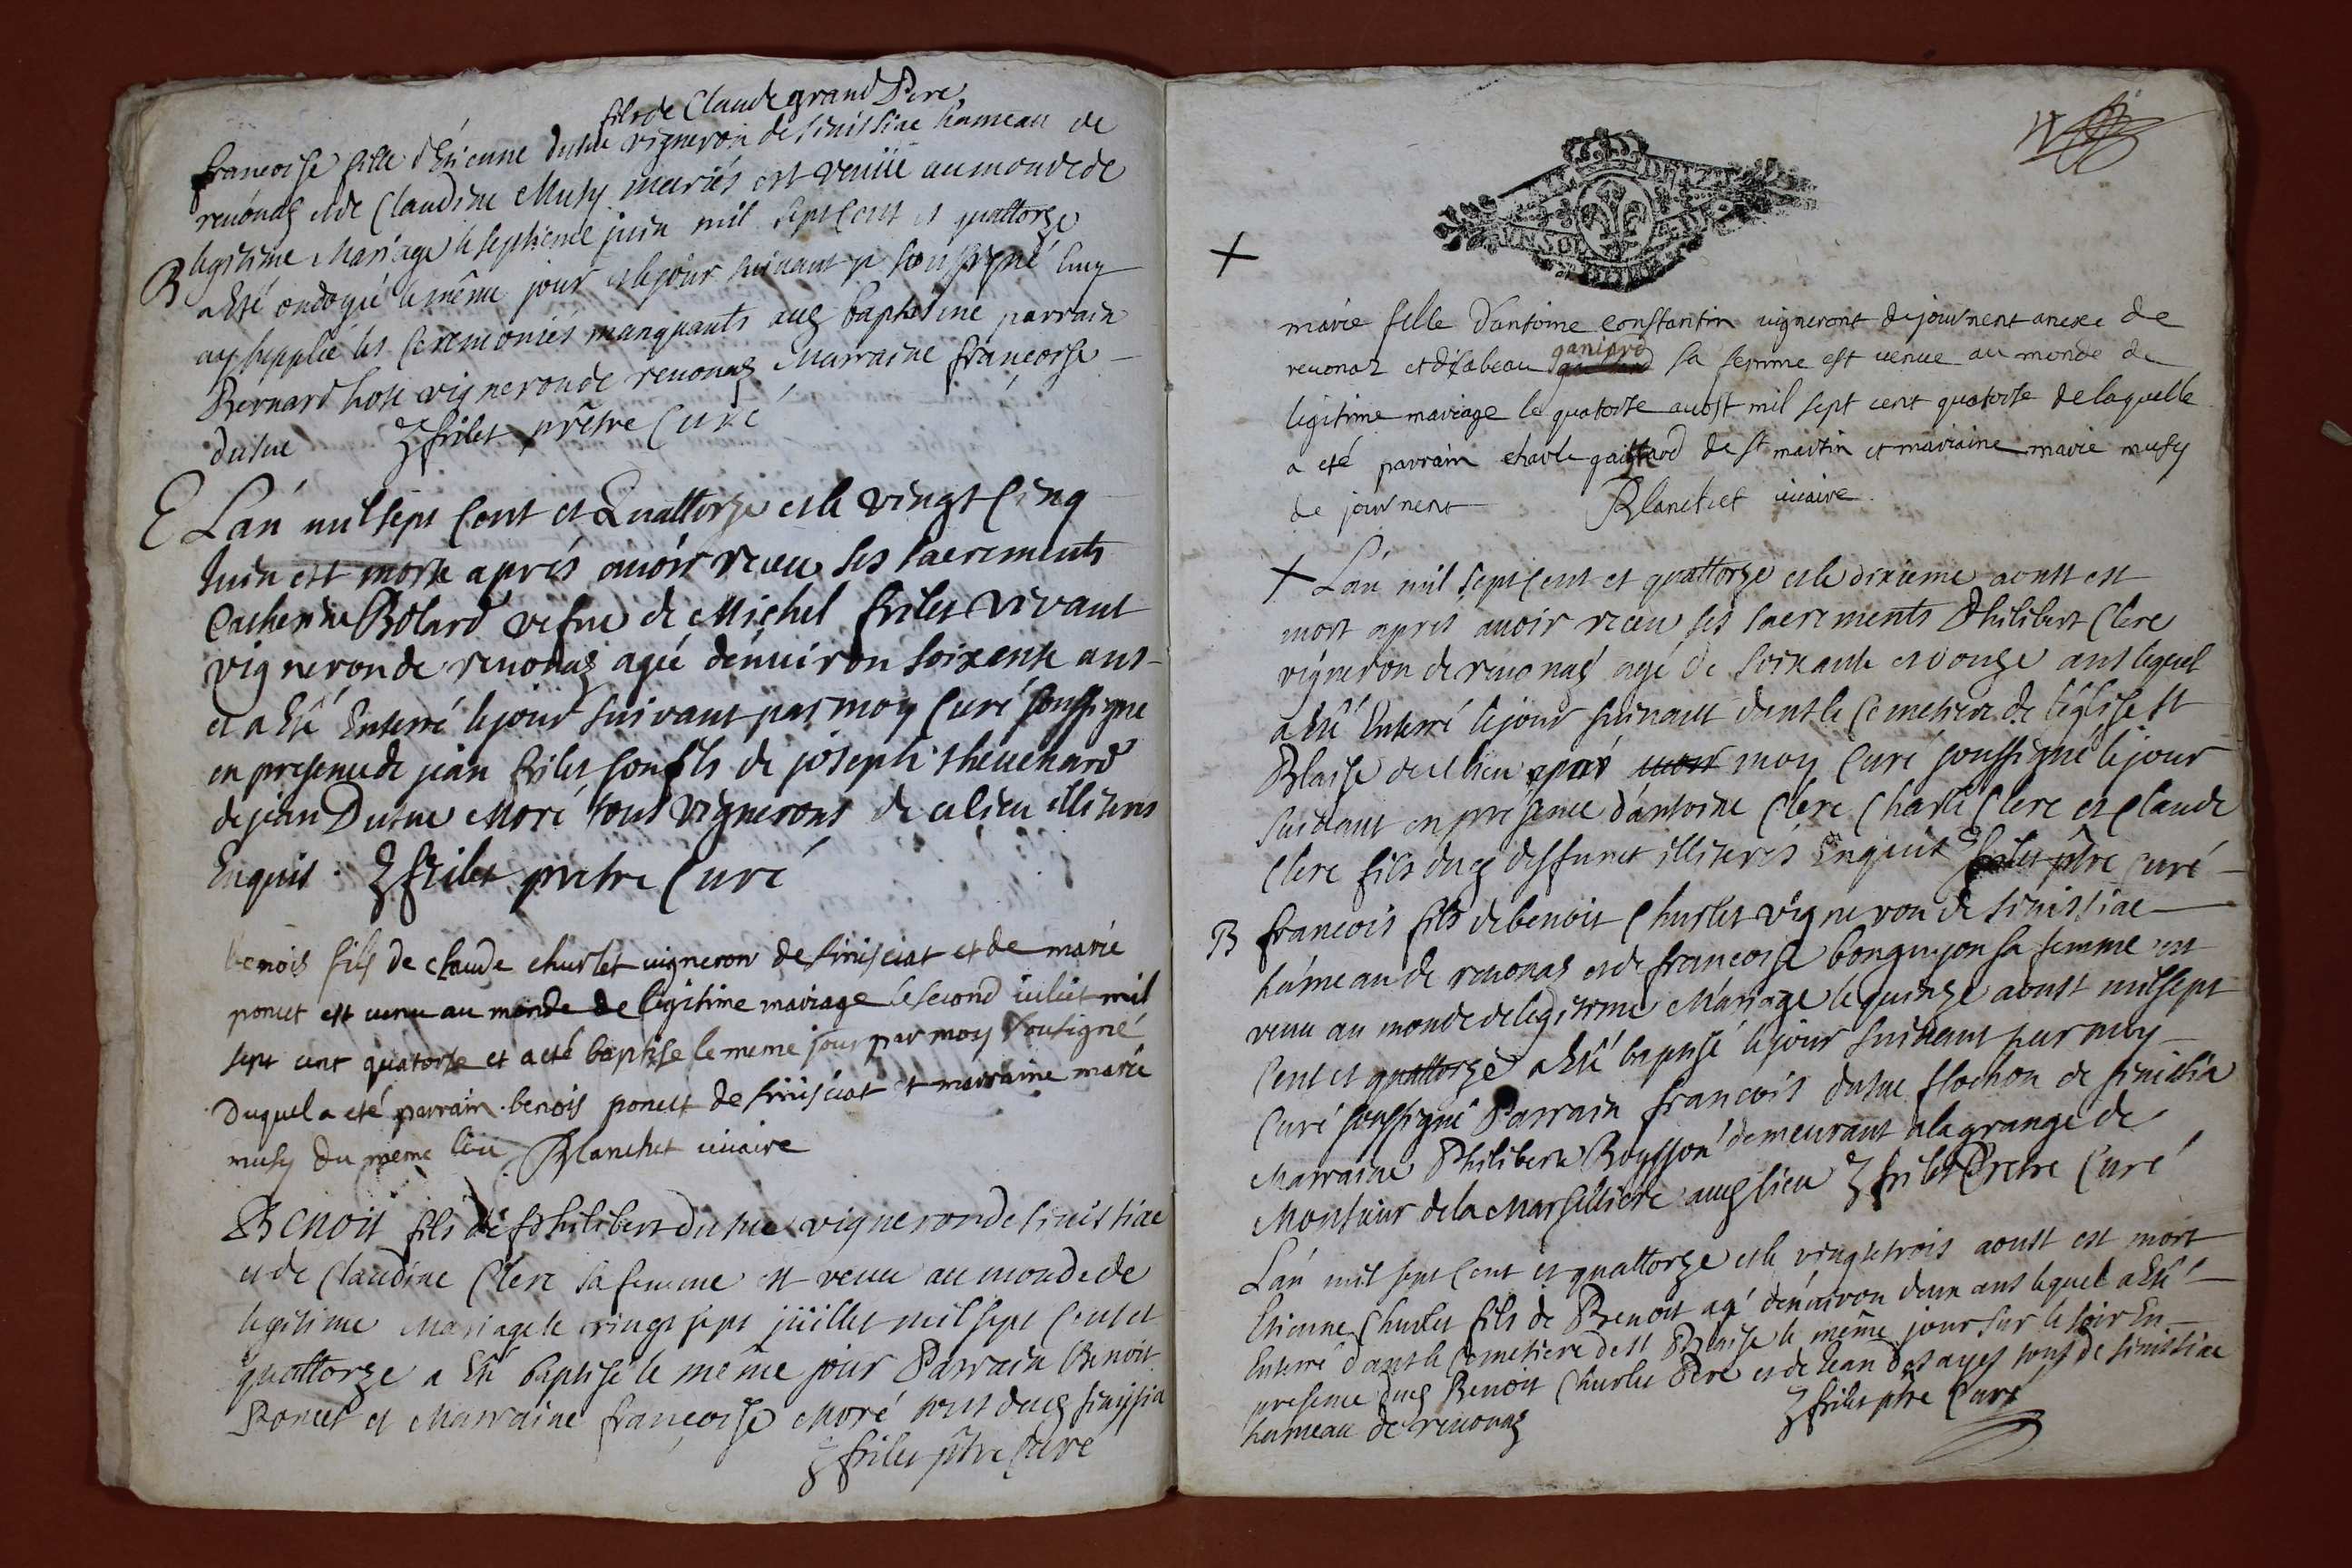 fils de Claude grand Pere
francoise fille d'Etienne dutue vigneron de sinissiac hameau de
reuonas et de Claudine Musy mariés est venüe au monde de
B legitime Mariage le septieme juin mil sept cent et quattorze
a esté ondoyé le même jour et le jour suivant je soussigné luy
ay supplié les ceremoniés manquants aud baptesme parrain
Bernard hose vigneron de reuonas Marraine francoise
dutue frilet prêtre Curé
E L'an mil sept cent et Quattorze et le vingt cinq
Juin est morte aprés auoir receu ses sacrements
Catherine Bolard vefue de Michel frilet vivant
vigneron de reuonas agée d'enuiron soixente ans
et a esté Enterré le jour suivant par moy Curé soussigne
en presence de jean frilet son fils de joseph theuenard
de jean Dutue Moré tous vignerons de ce lieu illiterés
Enquis frilet pretre Curé
benois fils de claude churlet uigneron de sinisciat et de marie
poncet est uenu au monde de legitime mariage le second iuliet mil
sept cent quatorse et a eté baptise le meme jour par moy soutigné
Duquel a eté parrain benois poncet de sinisciat et marraine marie
musy du même lieu Blanchet uicaire
Benoit fils de Philibert dutue vigneron de sinissiac
et de Claudine Clere sa femme est venu au monde de
legitime Mariage le vingt sept juillet mil sept cent et
quattorze a esté baptisé le même jour Parrain Benoit
Poncet et Marraine francoise Moré tous dud sinissia
frilet ptre Curé
marie fille d'antoine constantin uigneront de journent anexe de
ganiard
reuonaz et d'isabeau sa femme est uenue au monde de
legitime mariage le quatorse auost mil sept cent quatorse de laquelle
a eté parrain charle gaillard de st martin et marraine marie musy
de journent Blanchet uicaire
L'an mil sept cent et quattorze et le dixieme aoust est
mort apres auoir receu ses sacrements Philibert Clere
vigneron de reuonas agé de soixante et douze ans lequel
a esté Enterré le jour suiuant dans le Cemetiere de l'église st
Blaise dud lieu par moy Curé soussigné le jour
suiuant en presence d'antoine Clere Charle Clere et Claude
Clere fils dud deffunct illiterés Enquis frilet ptre curé
B francois fils de benoit Churlet vigneron de sinissiac
hameau de reuonas et de francoise bonguyon sa femme est
venu au monde de legitime Mariage le quinze aoust mil sept
Cent et quattorze a esté baptisé le jour suiuant par moy
Curé soussigné Parrain francois dutue flochon de sinissia
Marraine Philiberte Boysson demeurant a la grange de
Monsieur de la Marsilliere aud lieu frilet Pretre Curé
L'an mil sept cent et quattorze et le vingt trois aoust est mort
Etienne Churlet fils de Benoit agé d'enuiron deux ans lequel a esté
Enterré dans le Cemetiere de st Blaise le même jour sur le soir En
presence dud Benoit Churlet Pere et de Jean des ayes tous de sinissiac
hameau de reuonas frilet ptre Curé